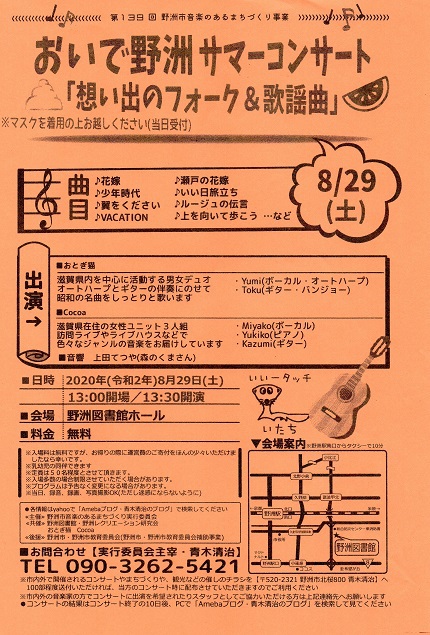 第139回 野洲市音楽のあるまちづくり事業
おいで野洲サマーコンサート
「想い出のフォーク&歌謡曲」
※マスクを着用の上お越しください(当日受付)
曲目
♪花嫁
♪少年時代
♪翼をください
♪VACATION
♪瀬戸の花嫁
♪いい日旅立ち
♪ルージュの伝言
♪上を向いて歩こう …など
8/29
(土)
出演→
■おとぎ猫
滋賀県内を中心に活動する男女デュオ
オートハープとギターの伴奏にのせて
昭和の名曲をしっとりと歌います
・Yumi(ボーカル・オートハープ)
・Toku(ギター・バンジョー)
■Cocoa
滋賀県在住の女性ユニット3人組
訪問ライブやライブハウスなどで
色々なジャンルの音楽をお届けしています
・Miyako(ボーカル)
・Yukiko(ピアノ)
・Kazumi(ギター)
■音響 上田てつや(森のくまさん)
■日時 2020年(令和2年)8月29日(土)
13:00開場/13:30開演
■会場 野洲図書館ホール
■料金 無料
いい〜タッチ
いたち
▼会場案内
※野洲駅南口からタクシーで10分
※入場料は無料ですが、お帰りの際に運営費のご寄付をほんの少々いただけましたら幸いです。
※乳幼児の同伴できます
※定員は50名程度とさせて頂きます。
※入場多数の場合制限させていただく場合があります。
※プログラムは予告なく変更になる場合があります。
※当日、録音、録画、写真撮影OK(ただし迷惑にならないように)
●各情報はyahooで「Amebaブログ・青木清治のブログ」で検索してください
<主催> 野洲市音楽のあるまちづくり実行委員会
<共催> 野洲図書館・野洲レクリエーション研究会
おとぎ猫 Cocoa
<後援> 野洲市・野洲市教育委員会(野洲市・野洲市教育委員会補助事業)
野洲図書館
■お問合わせ【実行委員会主宰・青木清治】
TEL 090-3262-5421
※市内外で開催されるコンサートやまちづくりや、観光などの催しのチラシを【〒520-2321 野洲市北桜800 青木清治】へ
100部程度送付いただければ、当方のコンサート時に配布させていただきますのでご利用ください
※市内外の音楽家の方でコンサートに出演を希望されたりスタッフとしてご協力いただける方は上記連絡先へお願いします
●コンサートの結果はコンサート終了の10日後、PCで「Amebaブログ・青木清治のブログ」を検索して見てください